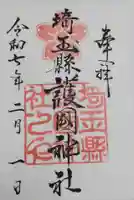 奉拝
埼玉縣護國神社
令和七年二月一日
埼玉縣
護國神
社之印